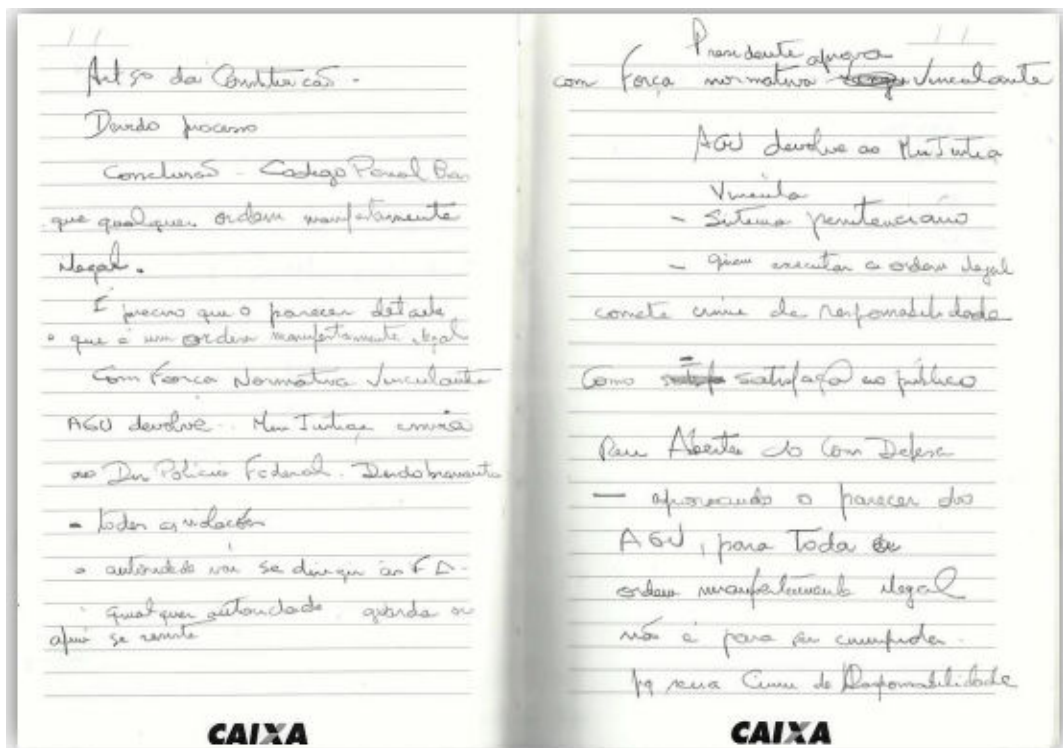 Art 5º da Constituição -
Devido processo
Conclusão - Codigo Penal
que qualquer ordem manifestamente
ilegal.
É preciso que o parecer detalhe
o que é um ordem manifestamente ilegal
Com Força Normativa Vinculante
AGU devolve - Min Justiça envia
ao Dir Policia Federal - Desdobramento
- todas as violações
a autoridade vai se dirigir às F A -
qualquer autoridade
se
Presidente aprova
com Força normativa Vinculante
AGU devolve ao Min Justiça
Vincula
- Sistema penitenciário
- quem executar a ordem ilegal
comete crime de responsabilidade
Como satisfação ao público
Reu Aberta do Com Defesa
- aprovando o parecer do
AGU, para toda
ordem manifestamente ilegal
não é para ser cumprida -
pq seria Crime de Responsabilidade
CAIXA
CAIXA